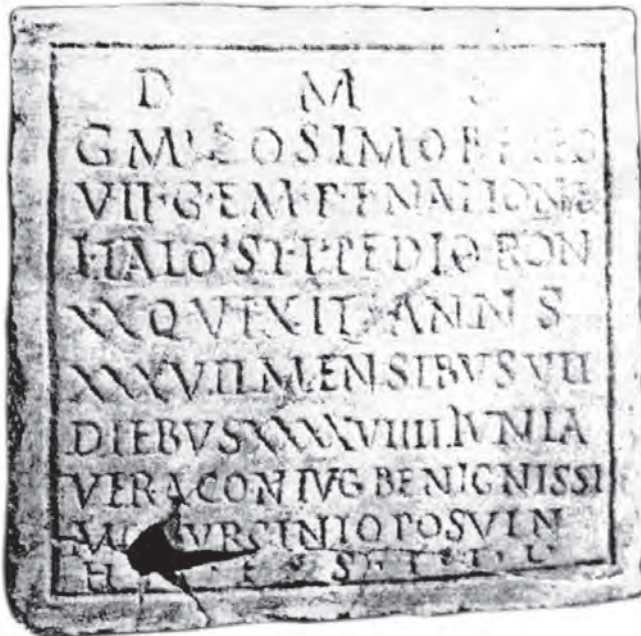 D M S
VII·G·EM·P·F·NATIONE
ITALO·STIPEDIORON
XXQVIXIT ANNS
XXXVII MENSIBVS VII
DIEBVSXXXXVIIII IVNIA
VERACONIVGBENIGNISSI
VRSINIOPOSVIN